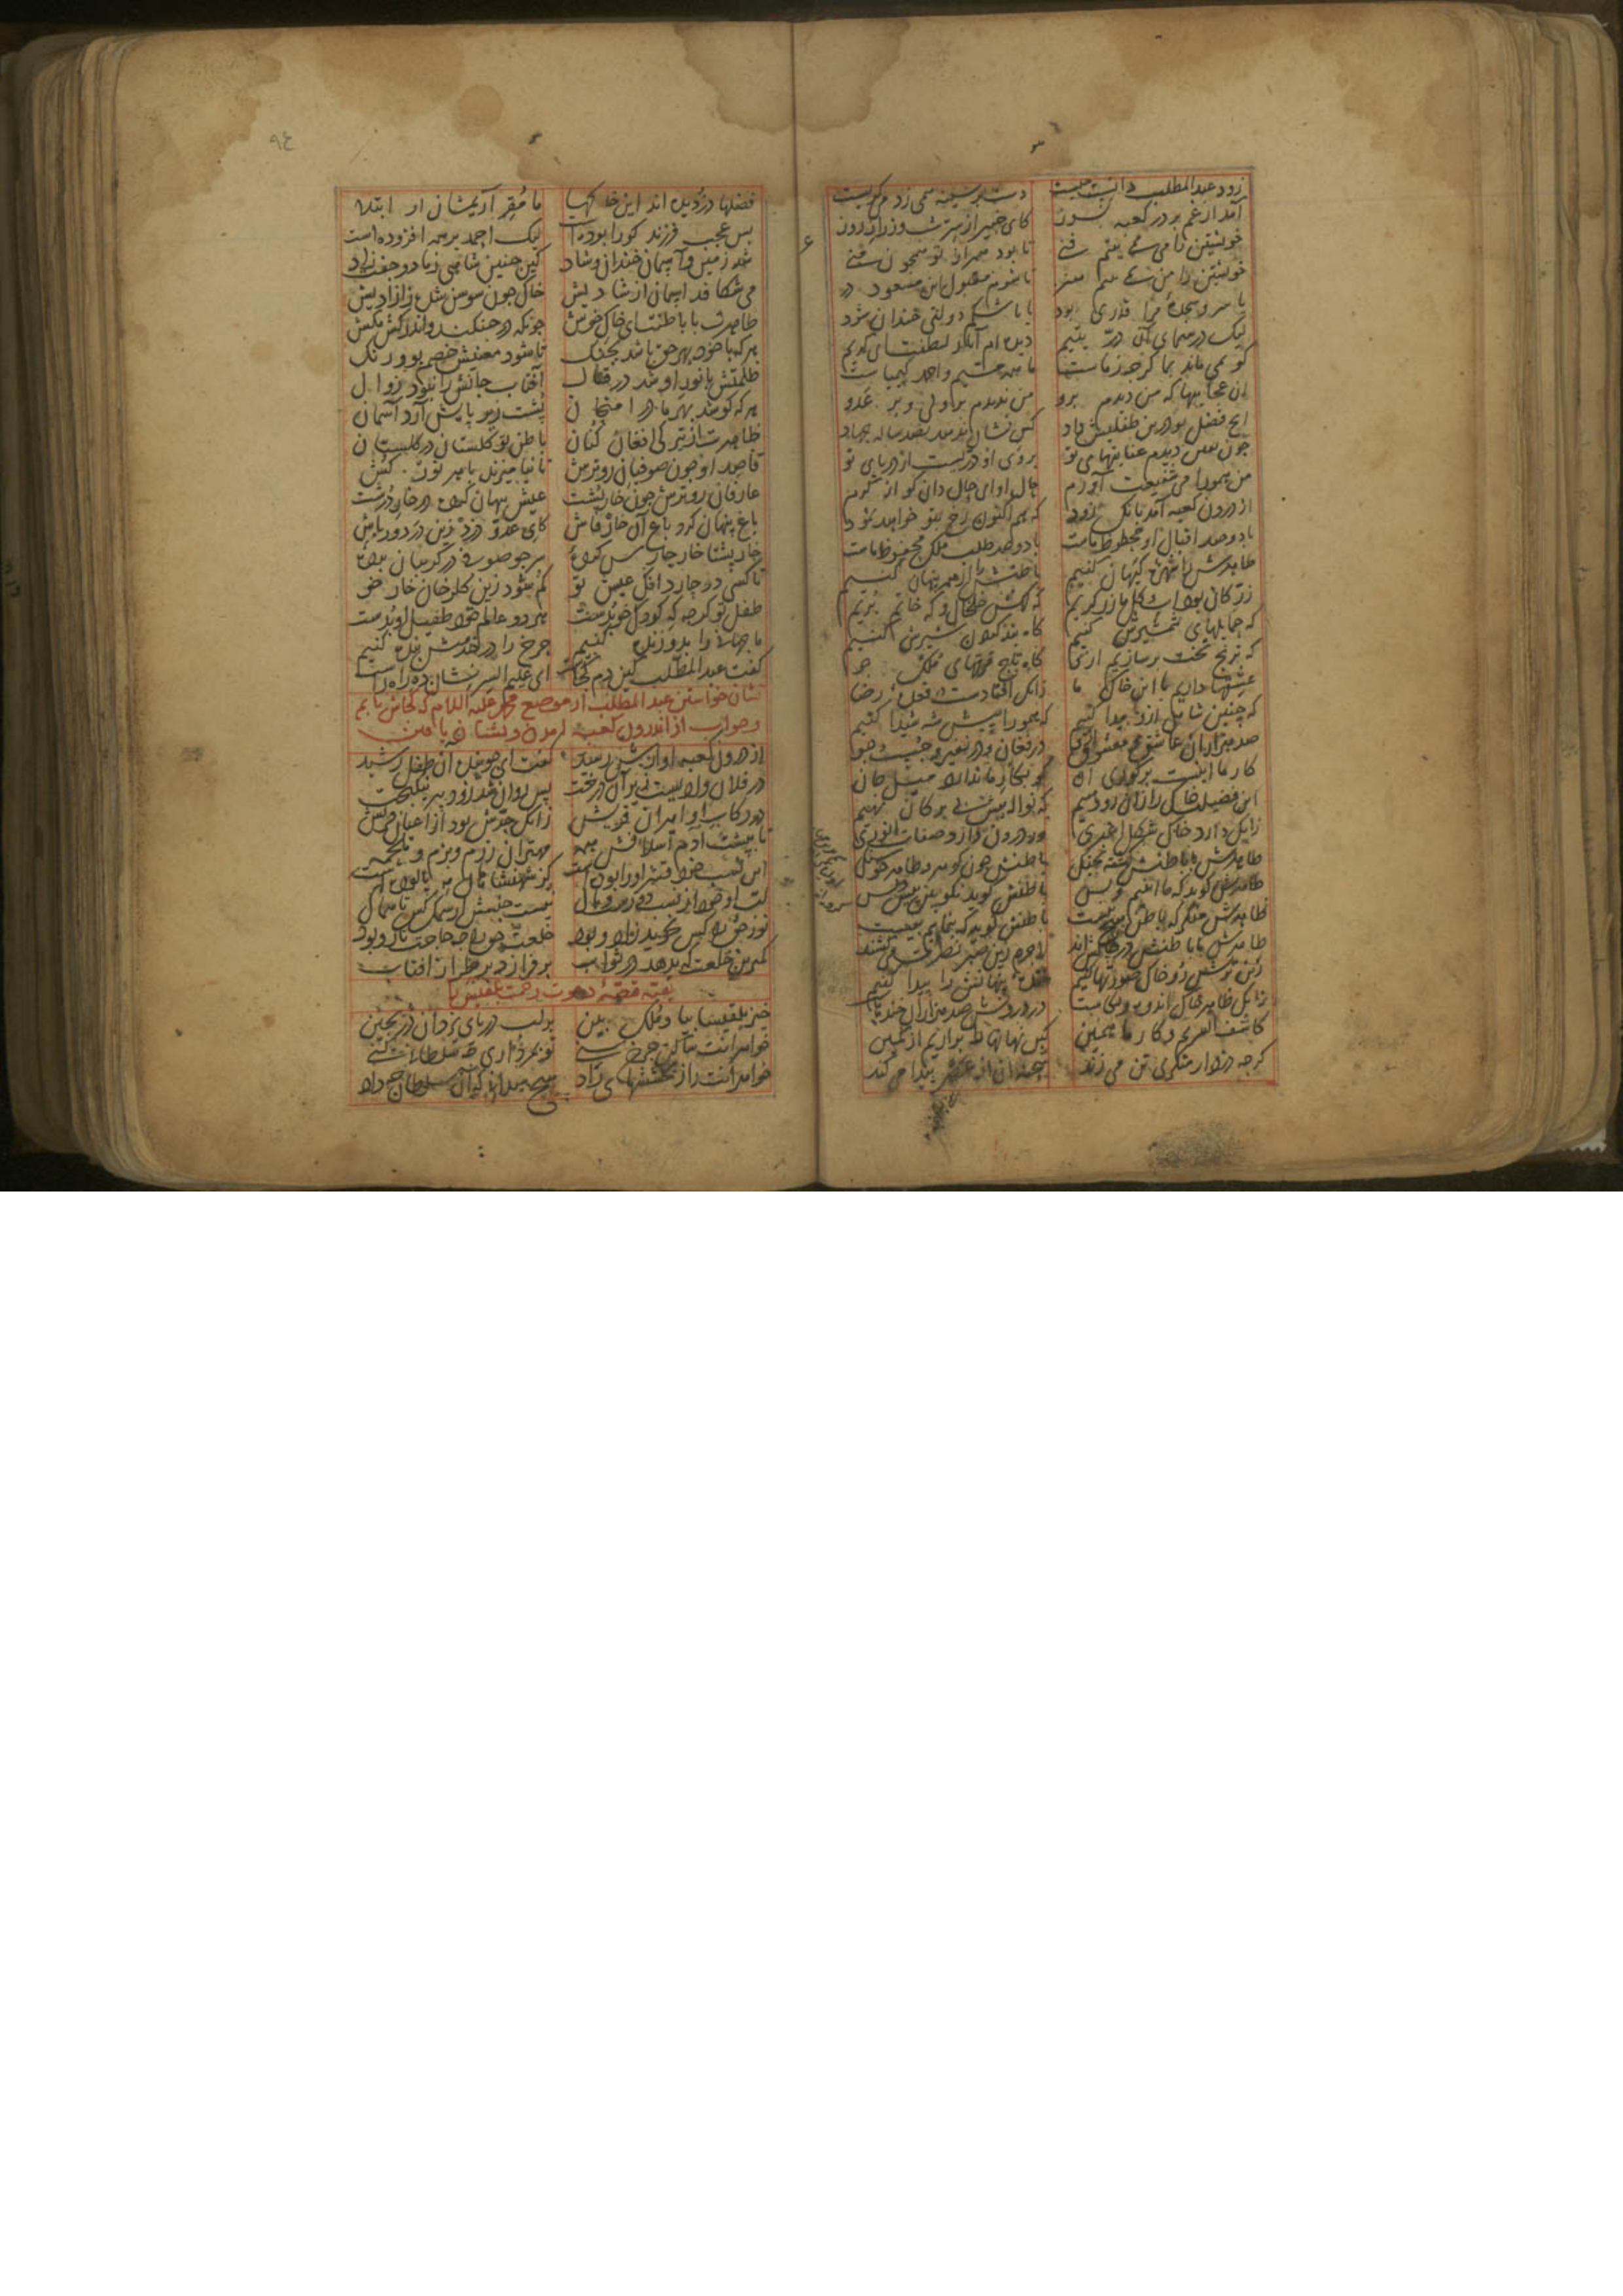 زود عبدالمطلب دانست چیست دست بر سینه همی زد می گریست
آمد از غم بر در کعبه بسوز کای خبیر از سر شب وز راز روز
خویشتن را من نمی بینم فنی تا بود همراز تو همچون منی
خویشتن را من نمی بینم هنر تا شوم مقبول این مسعود در
یا سر و سجده مرا قدری بود یا باشکم دولتی خندان شود
لیک در سیمای آن در یتیم دیده ام آثار لطفت ای کریم
کو نمی ماند بما گرچه ز ماست ما همه مسیم و احمد کیمیاست
آن عجایبها که من دیدم برو من ندیدم بر ولی و بر عدو
آنچ فضل تو درین طفلیش داد کس نشان ندهد بصد ساله جهاد
چون یقین دیدم عنایتهای تو بروی او دریست از دریای تو
من همورا می شفیع آرم حال او ای حال دان
از درون کعبه آمد بانگ زود که هم اکنون رخ بتو خواهد نمود
با دو صد اقبال او محظوظ ماست با دو صد طلب ملک محفوظ ماست
ظاهرش را شهره کیهان کنیم باطنش را از همه پنهان کنیم
زر کان بود آب و گل ما زرگریم که گهش خلخال و گه خاتم بریم
که حمایلهای شمشیرش کنیم گاه بند گردن شیرش کنیم
که ترنج تخت برسازیم ازو گاه تاج فرقهای ملک جو
عشقها داریم با این خاک ما زانک افتادست در قعده رضا
که چنین شاهی ازو پیدا کنیم که همورا پیش شه شیدا کنیم
صد هزاران عاشق و معشوق ازو در فغان و در نفیر و جست و جو
کار ما اینست بر کوری آن کو بکار ما ندارد میل جان
این فضیلت خاک را زان رو دهیم که نواله پیش بی برگان نهیم
زانک دارد خاک شکل اغبری وز درون دارد صفات انوری
ظاهرش با باطنش گشته بجنگ باطنش چون گوهر و ظاهر چو سنگ
ظاهرش گوید که ما اینیم و بس باطنش گوید نکو بین پیش و پس
ظاهرش منکر که باطن هیچ نیست باطنش گوید که بنماییم بیست
ظاهرش با باطنش در چالش اند لاجرم زین صبر نصرت می کشند
زین ترش رو خاک صورتها کنیم خنده پنهانش را پیدا کنیم
زانک ظاهر خاک اندوه و بکاست در درونش صد هزاران خنده هاست
کاشف السریم و کار ما همین کین نهانها را برآریم از کمین
گرچه دزد از منکری تن می زند شحنه آن از عصر پیدا می کند
فضلها دزدیده اند این خاکها تا مقر آریمشان از ابتلا
بس عجب فرزند کو را بوده است لیک احمد بر همه افزوده است
شد زمین و آسمان خندان و شاد کین چنین شاهی ز ما دو جفت زاد
می شکافد آسمان از شادیش خاک چون سوسن شده ز آزادیش
ظاهرت با باطنت ای خاک خوش چونکه در جنگند و اندر کش مکش
هرکه با خود بهر حق باشد بجنگ تا شود معنیش خصم بو و رنگ
ظلمتش با نور او شد در قتال آفتاب جانش را نبود زوال
هرکه کوشد بهر ما در امتحان پشت زیر پایش آرد آسمان
ظاهرت از تیرگی افغان کنان باطن تو گلستان در گلستان
قاصد او چون صوفیان روترش تا نیامیزند با هر نورکش
عارفان روترش چون خارپشت عیش پنهان کرده در خار درشت
باغ پنهان گرد باغ آن خار فاش کای عدو دزد زین در دور باش
خارپشتا خار حارس کرده سر چو صوفی در گریبان برده
تا کسی در چار دانگ عیش تو کم شود زین گلرخان خار خو
طفل تو گرچه که کودک خو بدست هر دو عالم خود طفیل او بدست
ما جهانی را بدو زنده کنیم چرخ را در خدمتش بنده کنیم
گفت عبدالمطلب کین دم کجاست ای علیم السر نشان ده راه راست
نشان خواستن عبدالمطلب از موضع محمد علیه السلام که کجاش یابم
و جواب از اندرون کعبه آمدن و نشان یافتن
از درون کعبه آوازش رسید گفت ای جوینده آن طفل رشید
در فلان وادیست زیر آن درخت پس روان شد زود پیر نیکبخت
در رکاب او امیران قریش زانک جدش بود از اعیان قریش
تا بپشت آدم اسلافش همه مهتران رزم و بزم و ملحمه
این نسب خود قشر او را بوده است کز شهنشاهان مه پالوده است
مغز او خود از نسب دورست و پاک نیست جنسش از سمک کس تا سماک
نور حق را کس نجوید زاد و بود خلعت حق را چه حاجت تار و پود
کمترین خلعت که بدهد در ثواب بر فزاید بر طراز آفتاب
بقیه قصه دعوت رحمت بلقیس را
خیز بلقیسا بیا و ملک بین بر لب دریای یزدان در بچین
خواهرانت ساکن چرخ سنی تو بمرداری چه سلطانی کنی
خواهرانت را ز بخششهای راد هیچ میدانی که آن سلطان چه داد